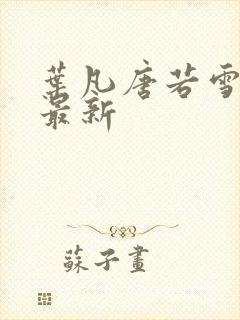 葉凡唐若雪
最新
蘇子畫